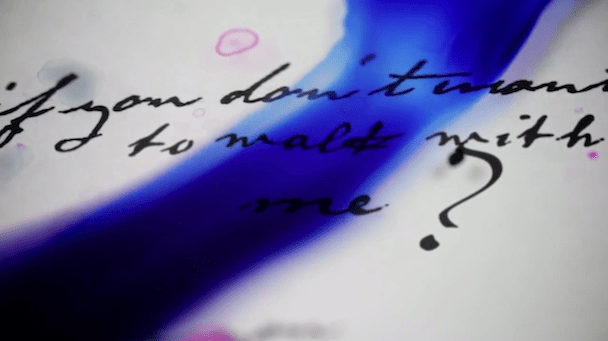 if you don't want
to walk with
me ?